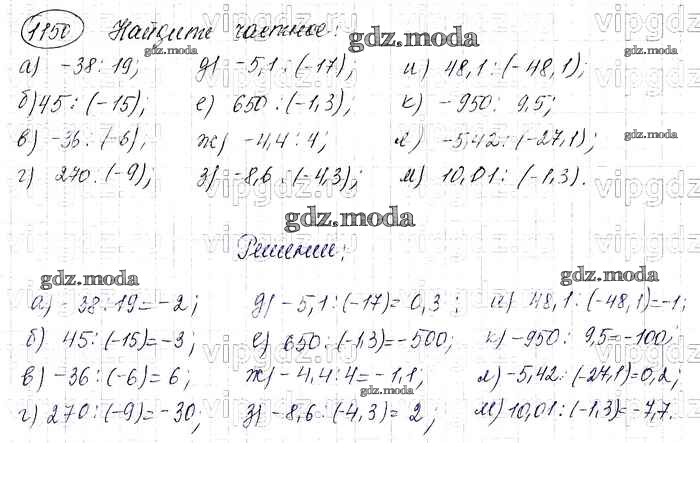 1150 Найдите частное:
а) -38 : 19; д) -5,1 : (-17); и) 48,1 : (-48,1);
б) 45 : (-15); е) 650 : (-1,3); к) -950 : 9,5;
в) -36 : (-6); ж) -4,4 : 4; л) -5,42 : (-27,1);
г) 270 : (-9); з) -8,6 : (-4,3); м) 10,01 : (-1,3).
Решение:
а) -38 : 19 = -2; д) -5,1 : (-17) = 0,3; и) 48,1 : (-48,1) = -1;
б) 45 : (-15) = -3; е) 650 : (-1,3) = -500; к) -950 : 9,5 = -100;
в) -36 : (-6) = 6; ж) -4,4 : 4 = -1,1; л) -5,42 : (-27,1) = 0,2;
г) 270 : (-9) = -30; з) -8,6 : (-4,3) = 2; м) 10,01 : (-1,3) = -7,7.
gdz.moda
gdz.moda
gdz.moda
gdz.moda
gdz.moda
gdz.moda
gdz.moda